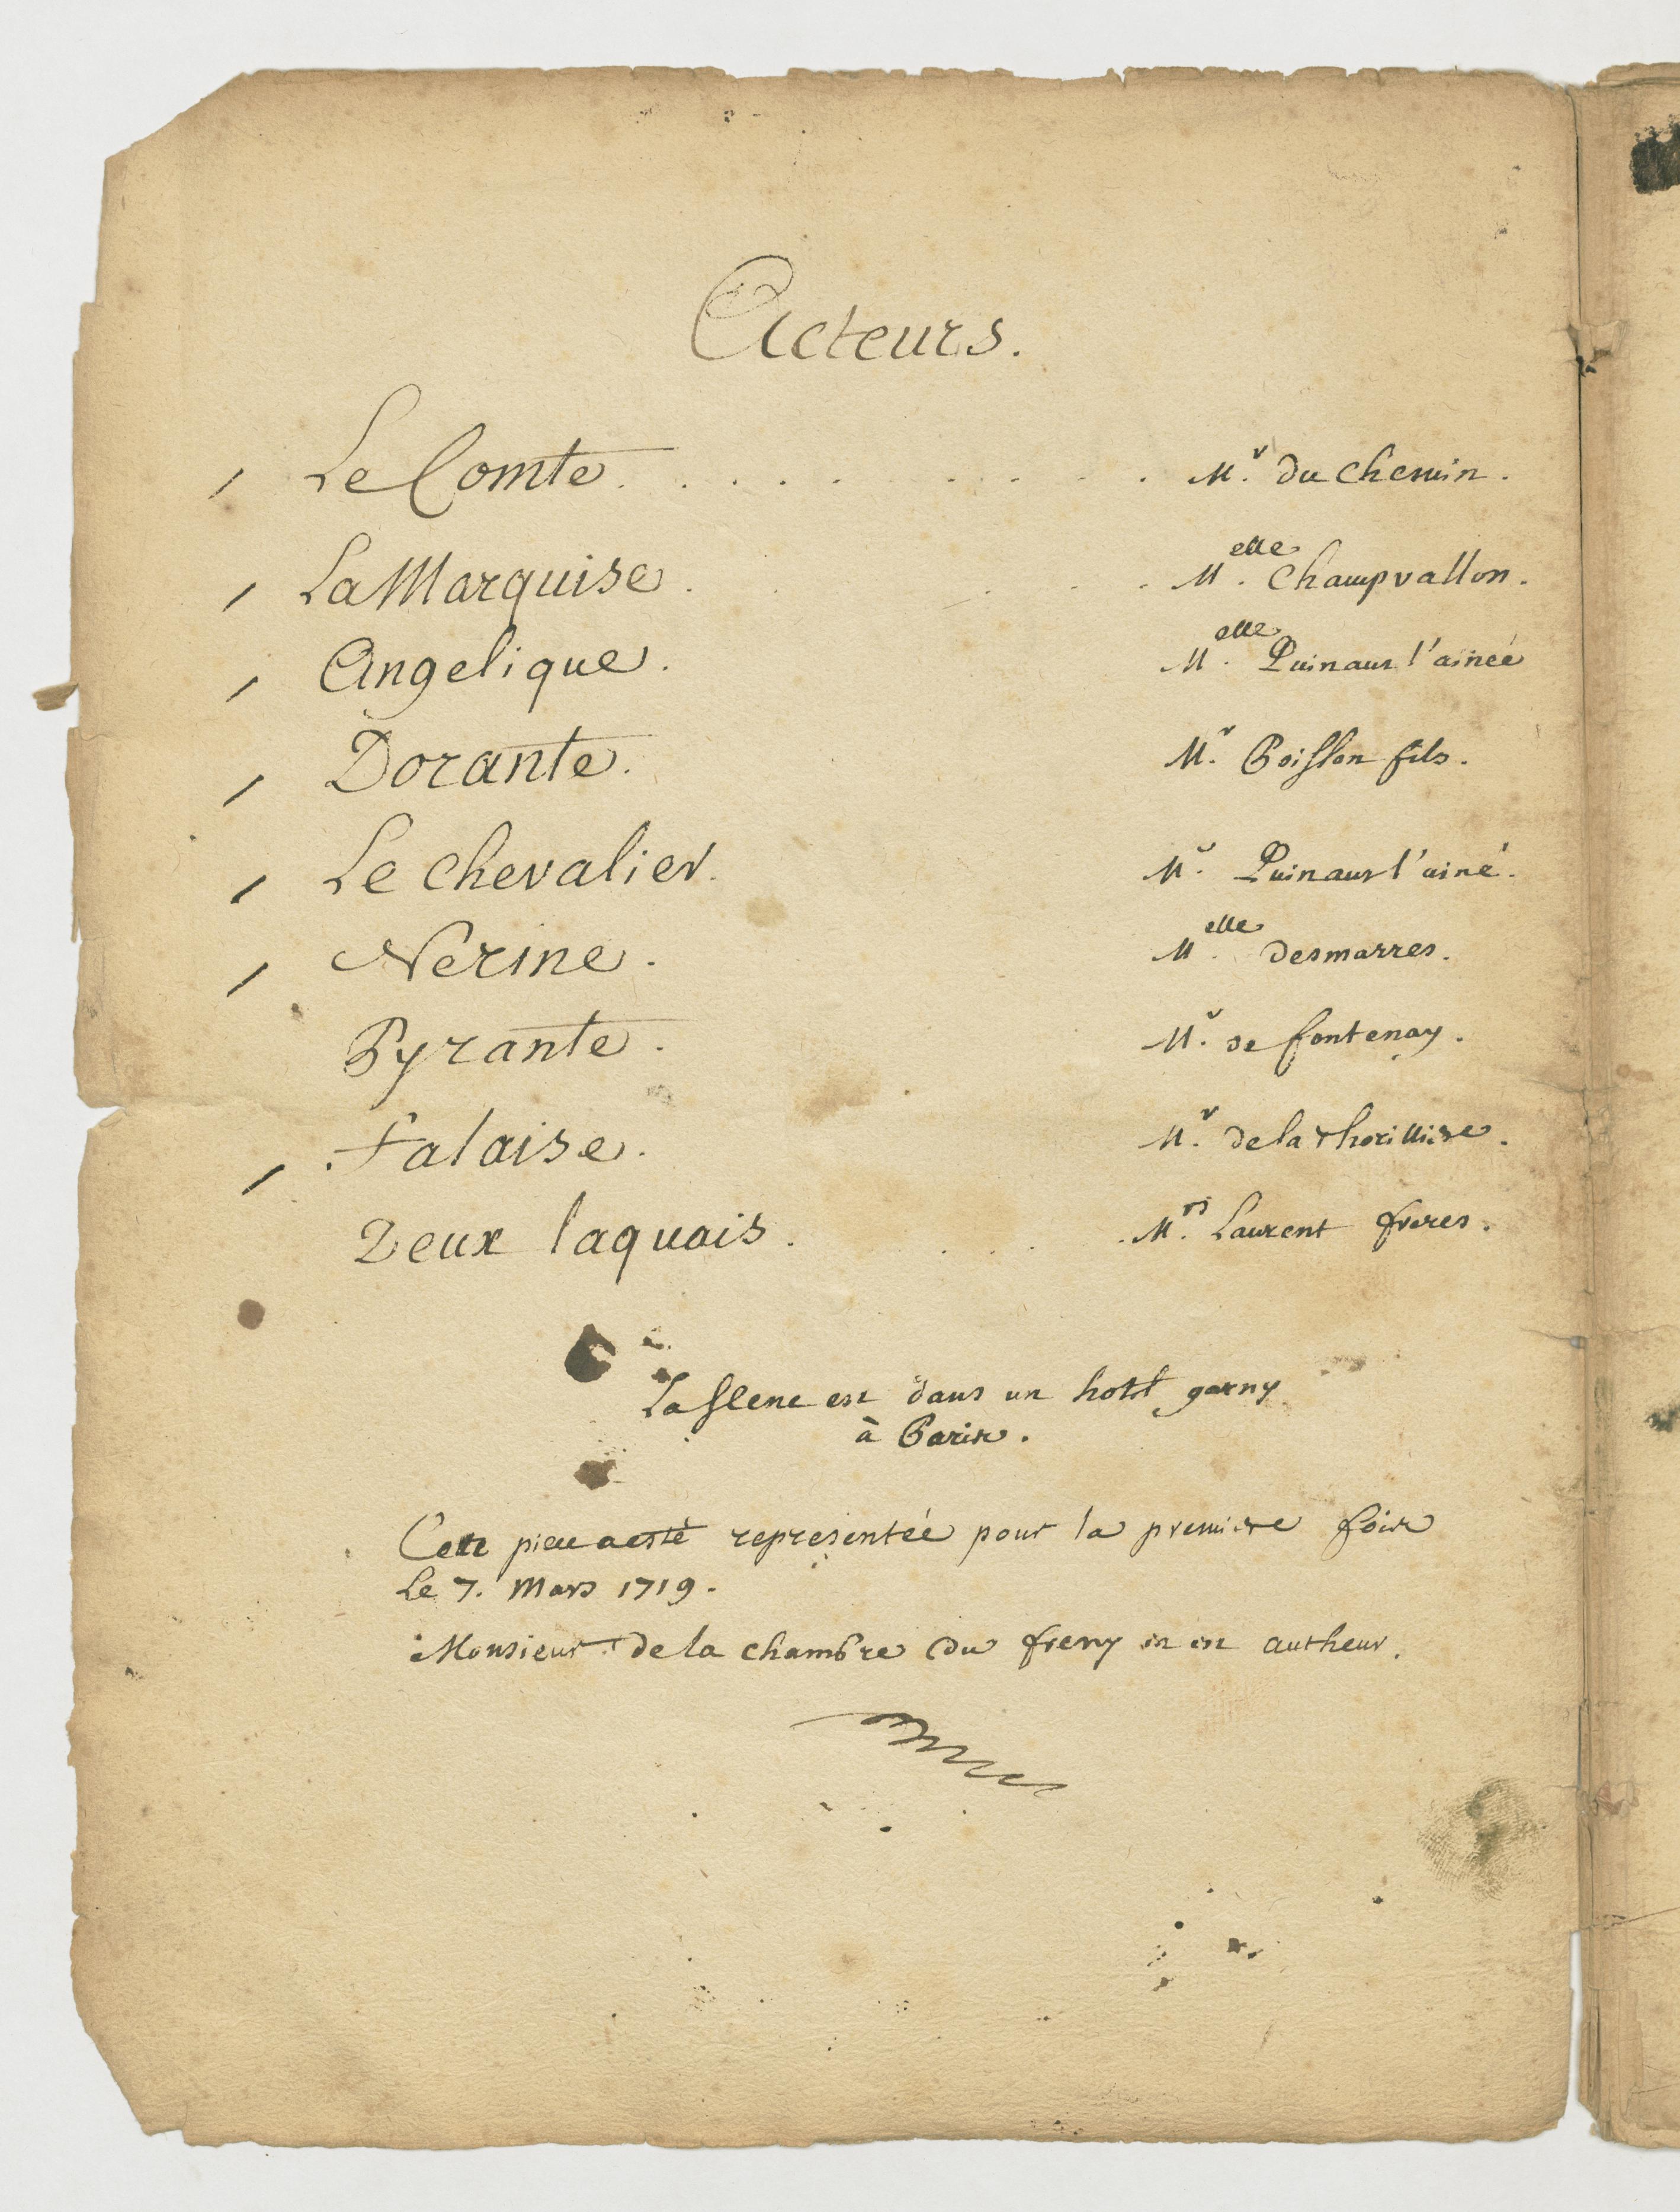 Acteurs.
Le Comte. . . . . . . . . . Mr. du chemin.
La Marquise. . . . . . Melle. Champvallon.
Angelique. Melle. Quinaut l'ainée
Dorante. Mr. Poisson fils.
Le chevalier. Mr. Quinaut l'ainé.
Nerine. Melle. desmarres.
Pyrante. Mr. de fontenay.
Falaise. Mr. de la thorilliere.
Deux laquais. . . . . Mrs. Laurent freres.
La scene est dans un hotel garny
à Paris.
Cette piece a esté representée pour la premiere fois
Le 7. Mars 1719.
Monsieur de la chambre du freny en est autheur.